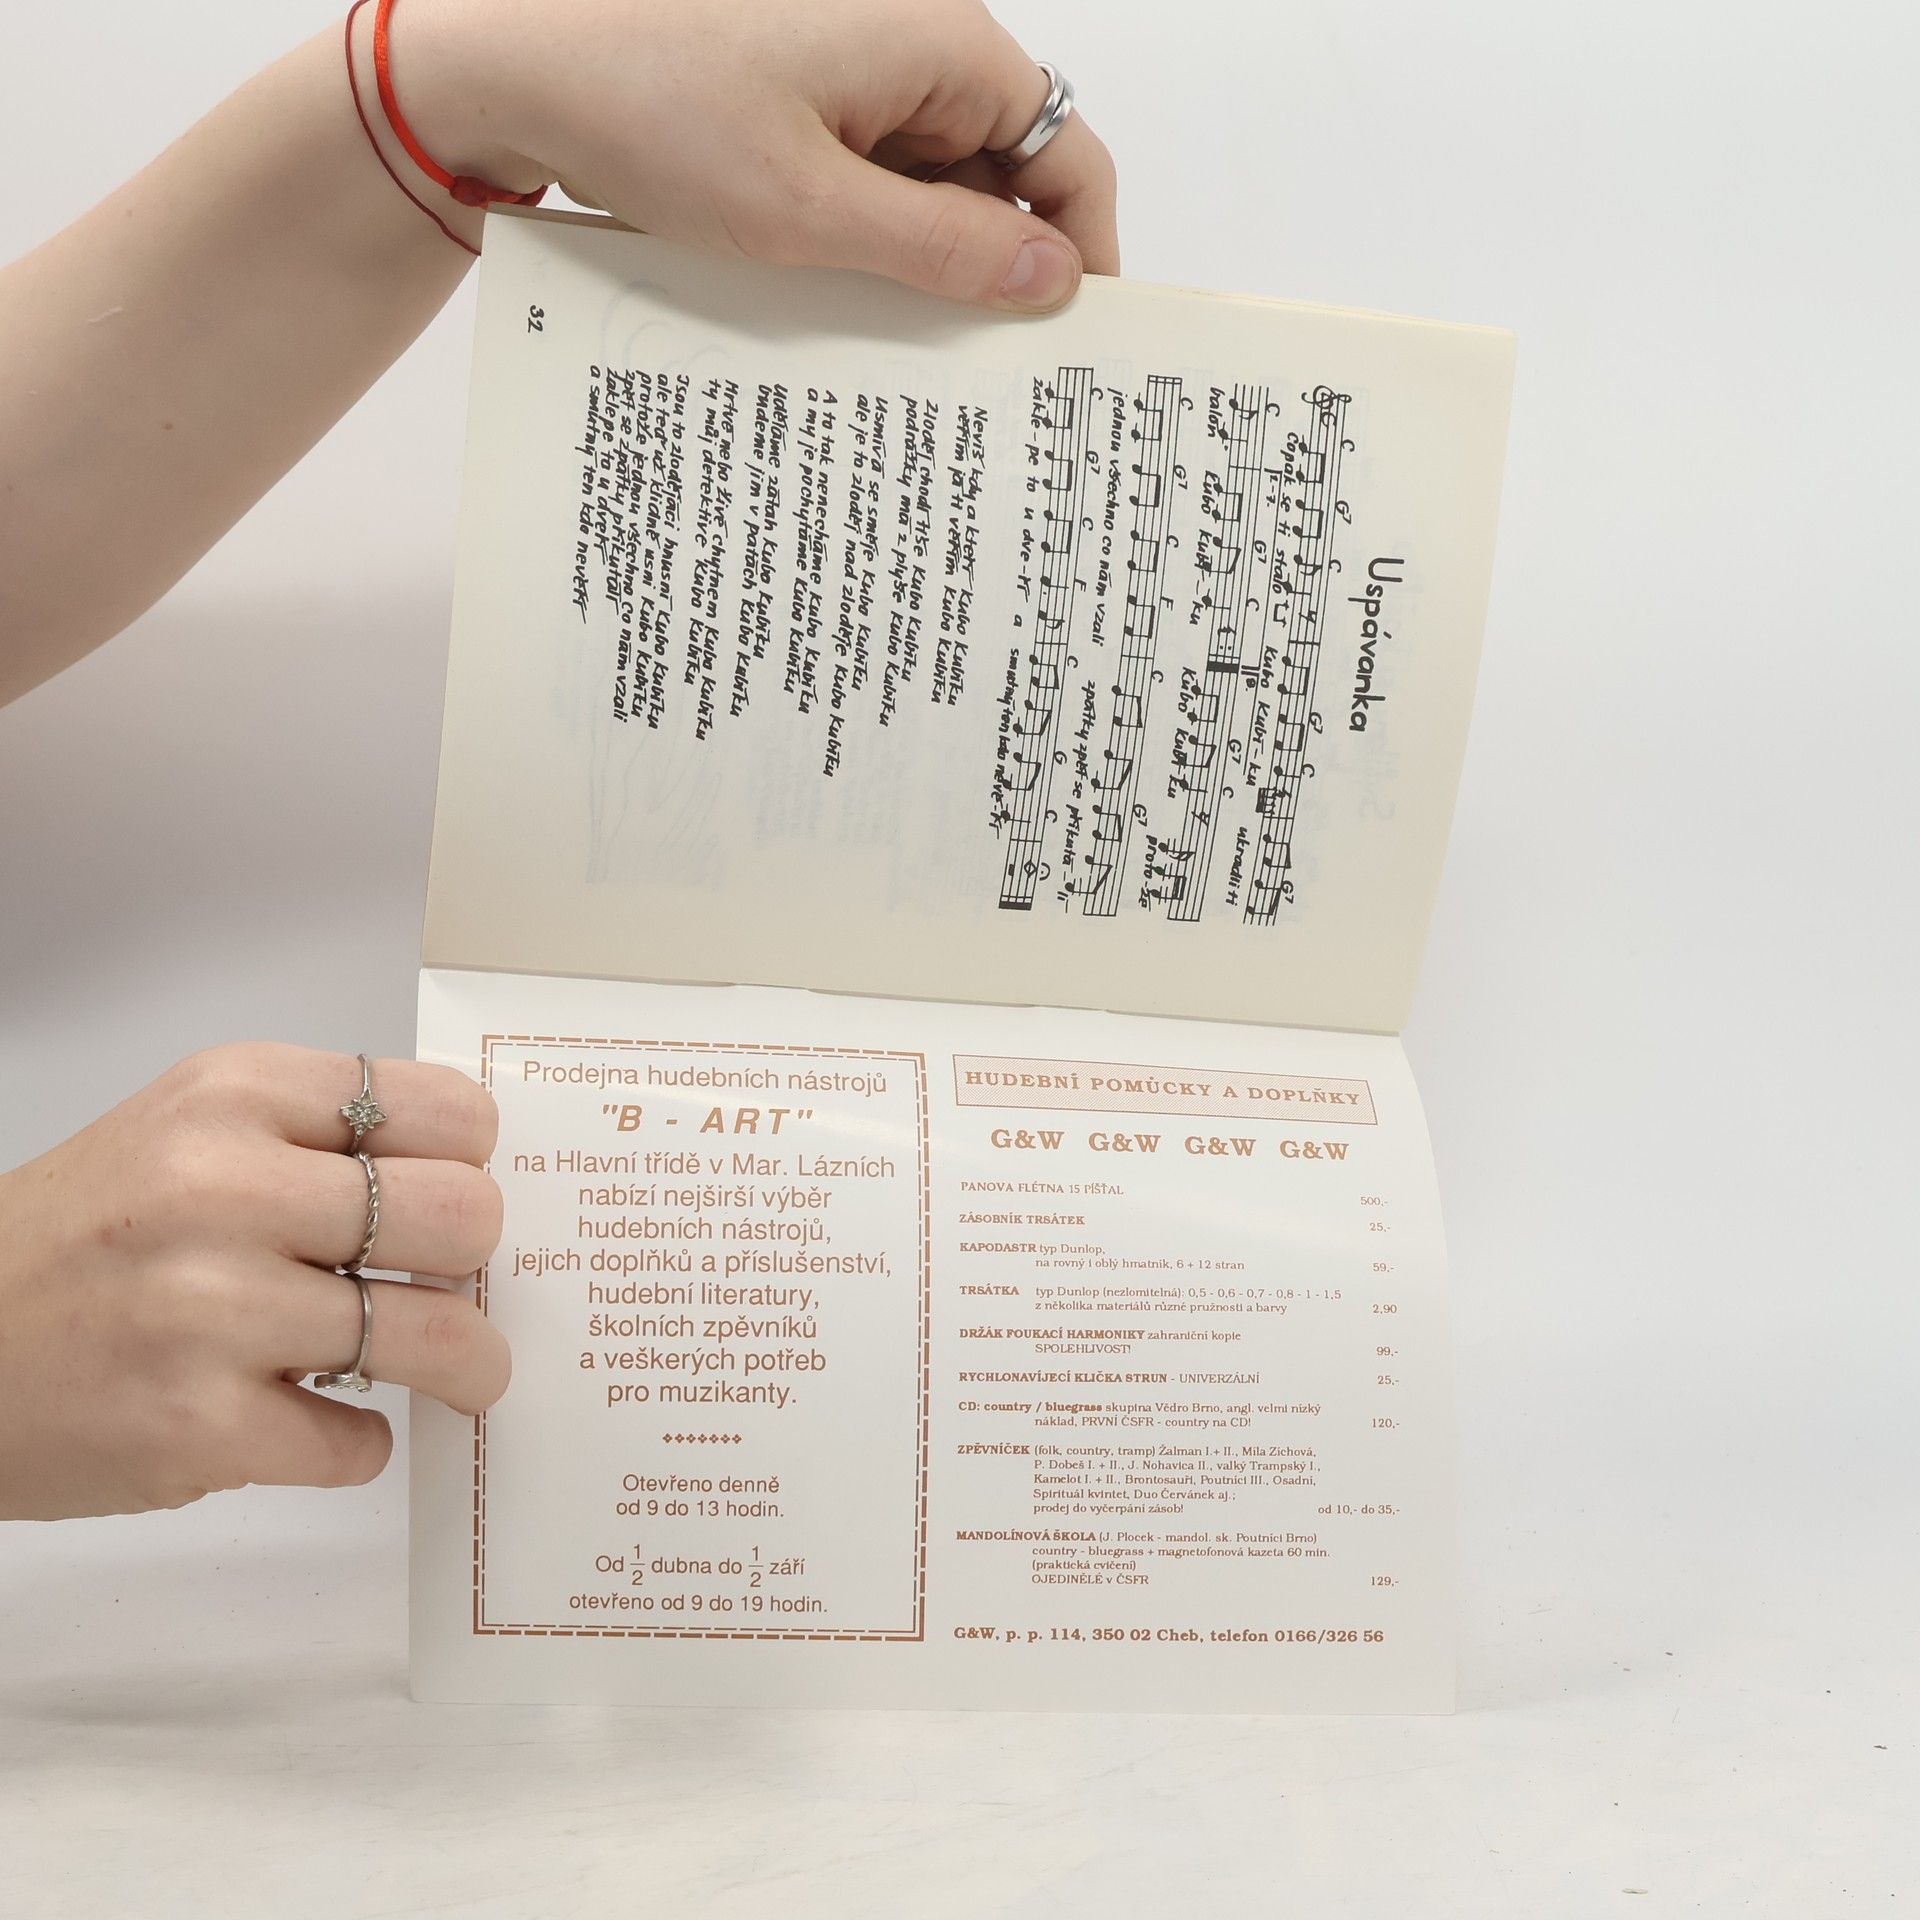 Uspávanka
C G7 C G7 C G7
Copak se ti stalo Kubo Kubí-ku ukradli ti
C G7 C G7 C
balón Kubo Kubí-ku Kubo Kubí-ku proto-že
C G7 C F C G7
jednou všechno co nám vzali zpátky zpět se přikutá-lí
C G7 C F C G C
zakle-pe to u dve-ří a smutný ten kdo nevě-ří
Nevíš kdy a kteří Kubo Kubíku
věřím já ti věřím Kubo Kubíku
Zloděj chodí tiše Kubo Kubíku
podrážky má z plyše Kubo Kubíku
Usmívá se směje Kubo Kubíku
ale je to zloděj nad zloděje Kubo Kubíku
A to tak nenecháme Kubo Kubíku
a my je pochytáme Kubo Kubíku
Uděláme zátah Kubo Kubíku
budeme jim v patách Kubo Kubíku
Mrtvé nebo živé chytnem Kubo Kubíku
ty můj detektive Kubo Kubíku
Jsou to zlodějáci hnusní Kubo Kubíku
ale teď už klidně usni Kubo Kubíku
protože jednou všechno co nám vzali
zpět se zpátky přikutálí
zaklepe to u dveří
a smutný ten kdo nevěří
32
Prodejna hudebních nástrojů
"B - ART"
na Hlavní třídě v Mar. Lázních
nabízí nejširší výběr
hudebních nástrojů,
jejich doplňků a příslušenství,
hudební literatury,
školních zpěvníků
a veškerých potřeb
pro muzikanty.
Otevřeno denně
od 9 do 13 hodin.
Od 1/2 dubna do 1/2 září
otevřeno od 9 do 19 hodin.
HUDEBNÍ POMŮCKY A DOPLŇKY
G&W G&W G&W G&W
PANOVA FLÉTNA 15 PÍŠŤAL 500,-
ZÁSOBNÍK TRSÁTEK 25,-
KAPODASTR typ Dunlop,
na rovný i oblý hmatník, 6 + 12 stran 59,-
TRSÁTKA typ Dunlop (nezlomitelná): 0,5 - 0,6 - 0,7 - 0,8 - 1 - 1,5
z několika materiálů různé pružnosti a barvy 2,90
DRŽÁK FOUKACÍ HARMONIKY zahraniční kopie
SPOLEHLIVOST! 99,-
RYCHLONAVÍJECÍ KLIČKA STRUN - UNIVERZÁLNÍ 25,-
CD: country / bluegrass skupina Vědro Brno, angl. velmi nízký
náklad, PRVNÍ ČSFR - country na CD! 120,-
ZPĚVNÍČEK (folk, country, tramp) Žalman I.+ II., Mila Zichová,
P. Dobeš I. + II., J. Nohavica II., valký Trampský I.,
Kamelot I. + II., Brontosauři, Poutníci III., Osadní,
Spirituál kvintet, Duo Červánek aj.;
prodej do vyčerpání zásob! od 10,- do 35,-
MANDOLÍNOVÁ ŠKOLA (J. Plocek - mandol. sk. Poutníci Brno)
country - bluegrass + magnetofonová kazeta 60 min.
(praktická cvičení)
OJEDINĚLÉ v ČSFR 129,-
G&W, p. p. 114, 350 02 Cheb, telefon 0166/326 56